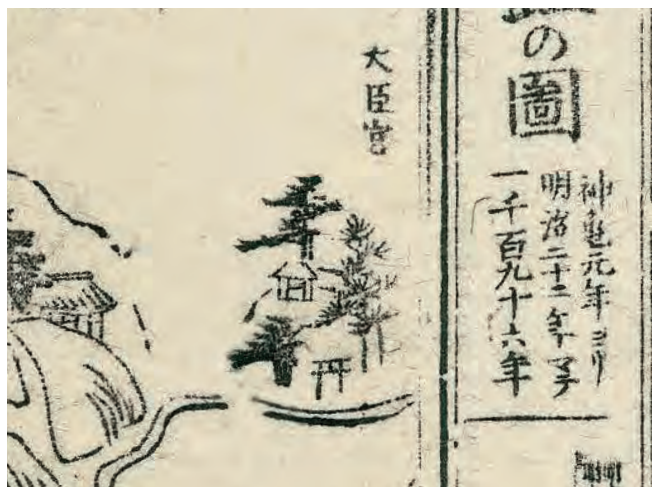 の圖
神亀元年ヨリ
明治二十二年マテ
一千百九十六年
大臣宮